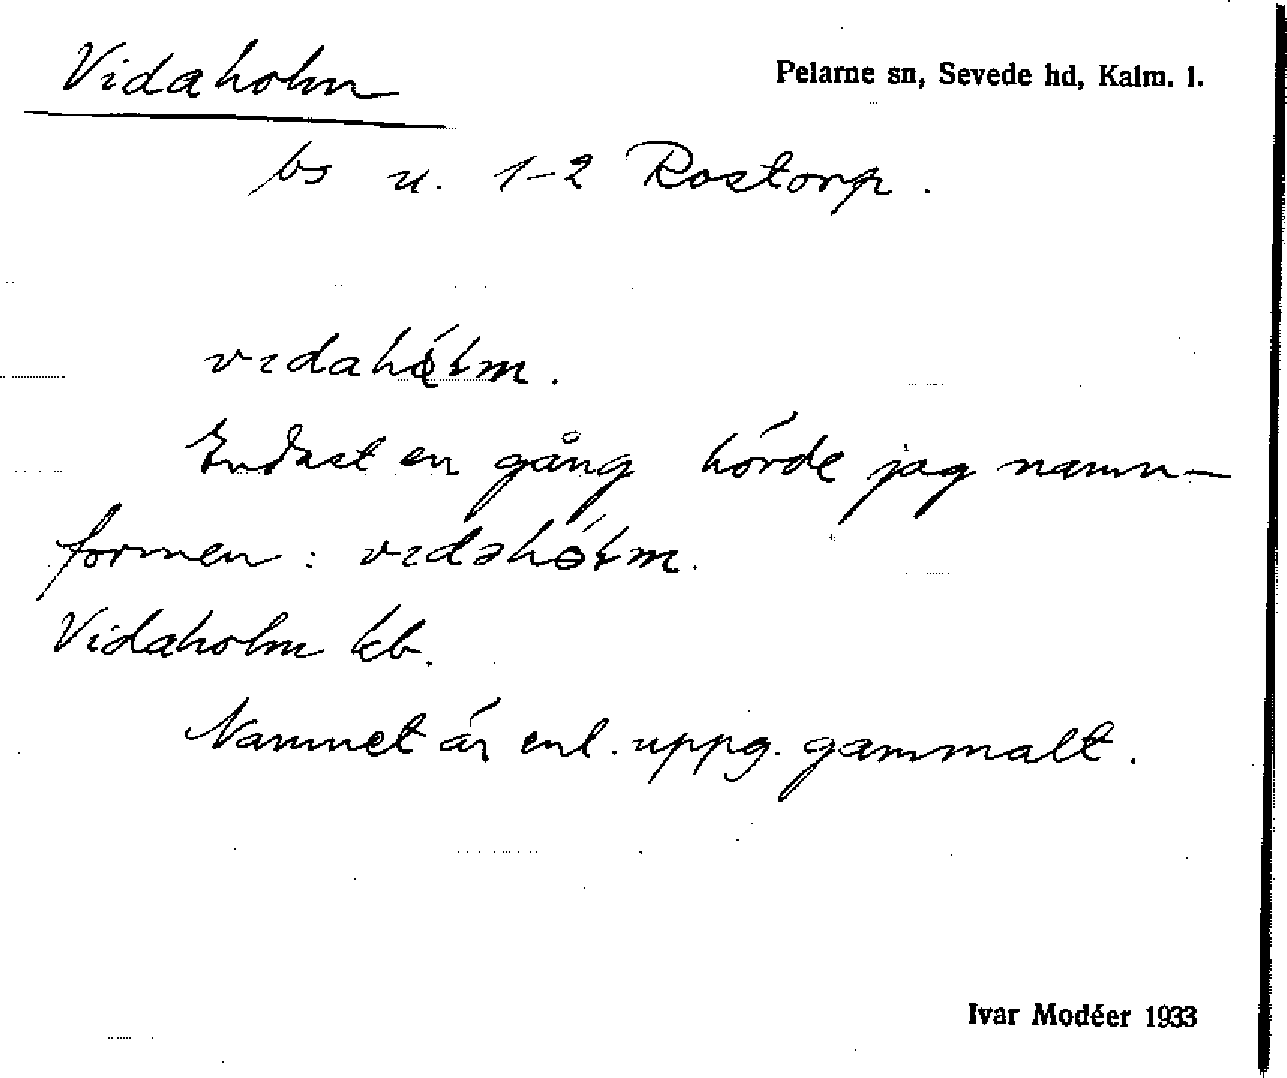 Vidaholm
Pelarne sn, Sevede hd, Kalm. l.
bs u. 1-2 Rostorp.
vɪdahólm.
Endast en gång hörde jag namn-
formen: vɪdəhólm.
Vidaholm kb.
Namnet är enl. uppg. gammalt.
Ivar Modéer 1933